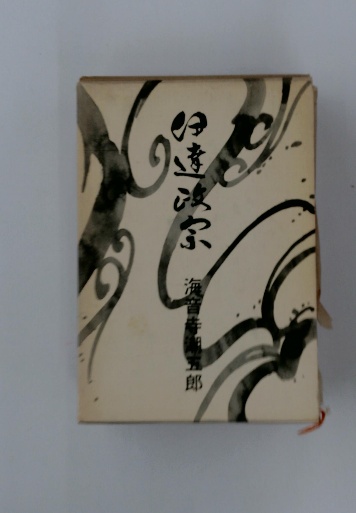 伊達政宗
海音寺潮五郎